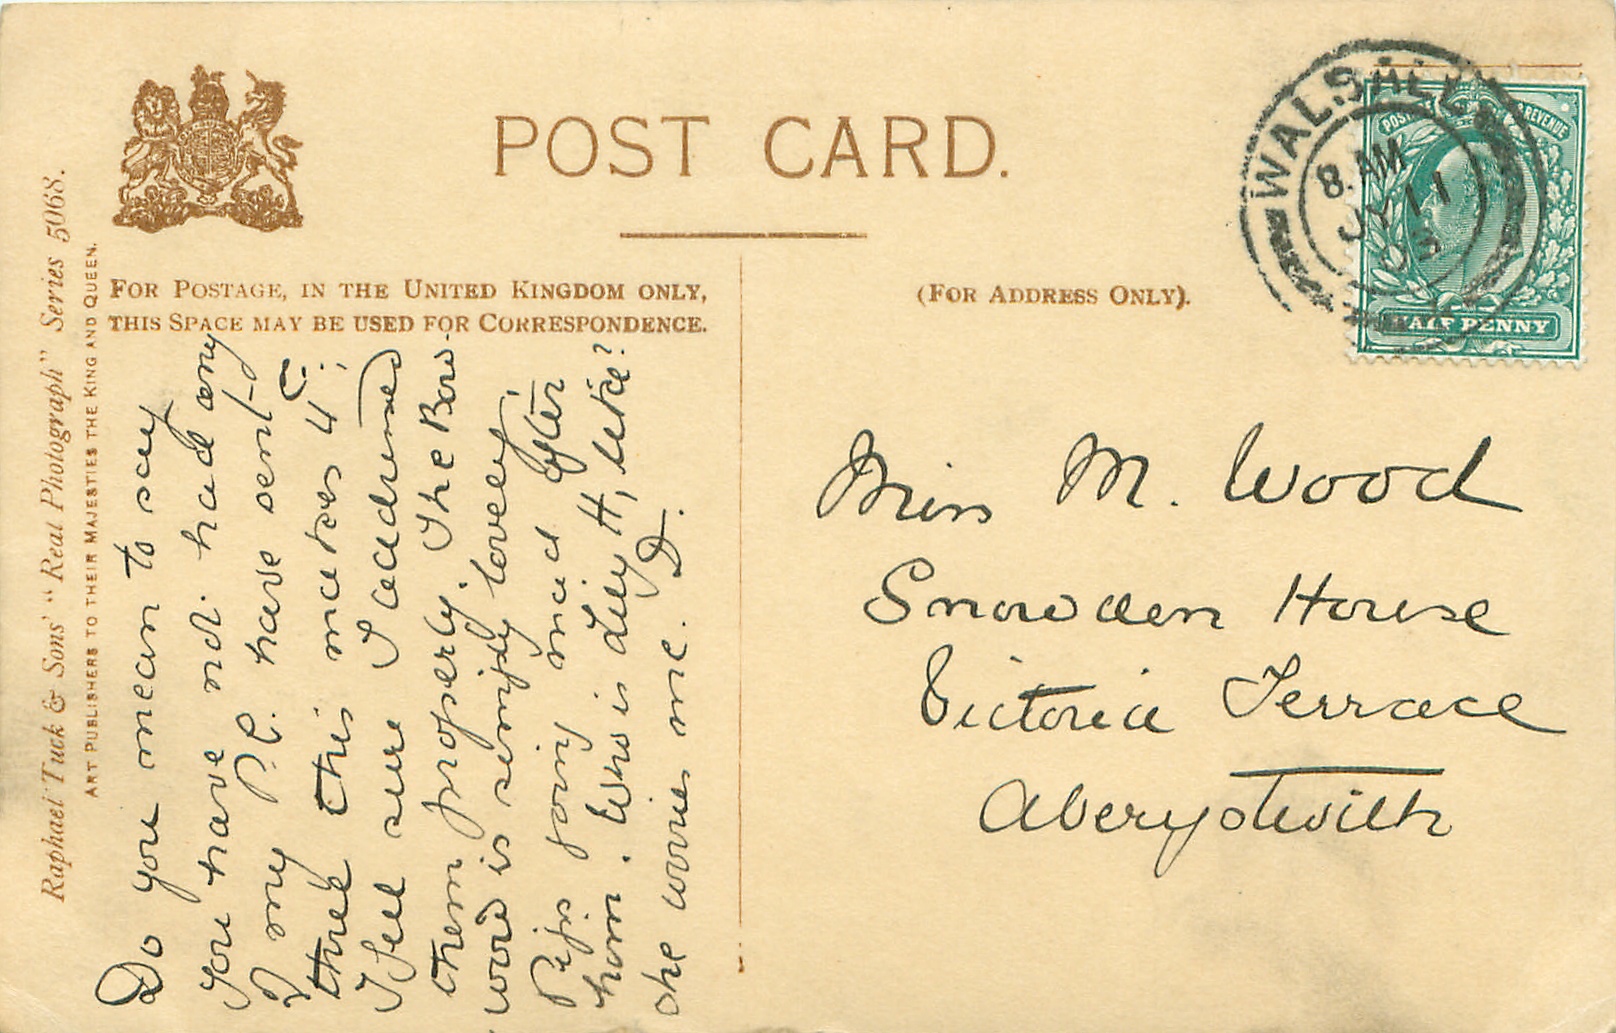 POST CARD.
FOR POSTAGE, IN THE UNITED KINGDOM ONLY,
THIS SPACE MAY BE USED FOR CORRESPONDENCE.
(FOR ADDRESS ONLY).
Raphael Tuck & Sons' "Real Photograph" Series 5068.
ART PUBLISHERS TO THEIR MAJESTIES THE KING AND QUEEN.
WALSALL
8. AM
JY 11
POSTAGE & REVENUE
HALF PENNY
Do you mean to say
you have not had any
of my P.C. have sent
three this makes 4
I feel sure I addressed
them properly. The Bow
wow is simply lovely,
going mad after
him. Who is Lilly H, like?
she worries me. D.
Miss M. Wood
Snowden House
Victoria Terrace
Aberystwith